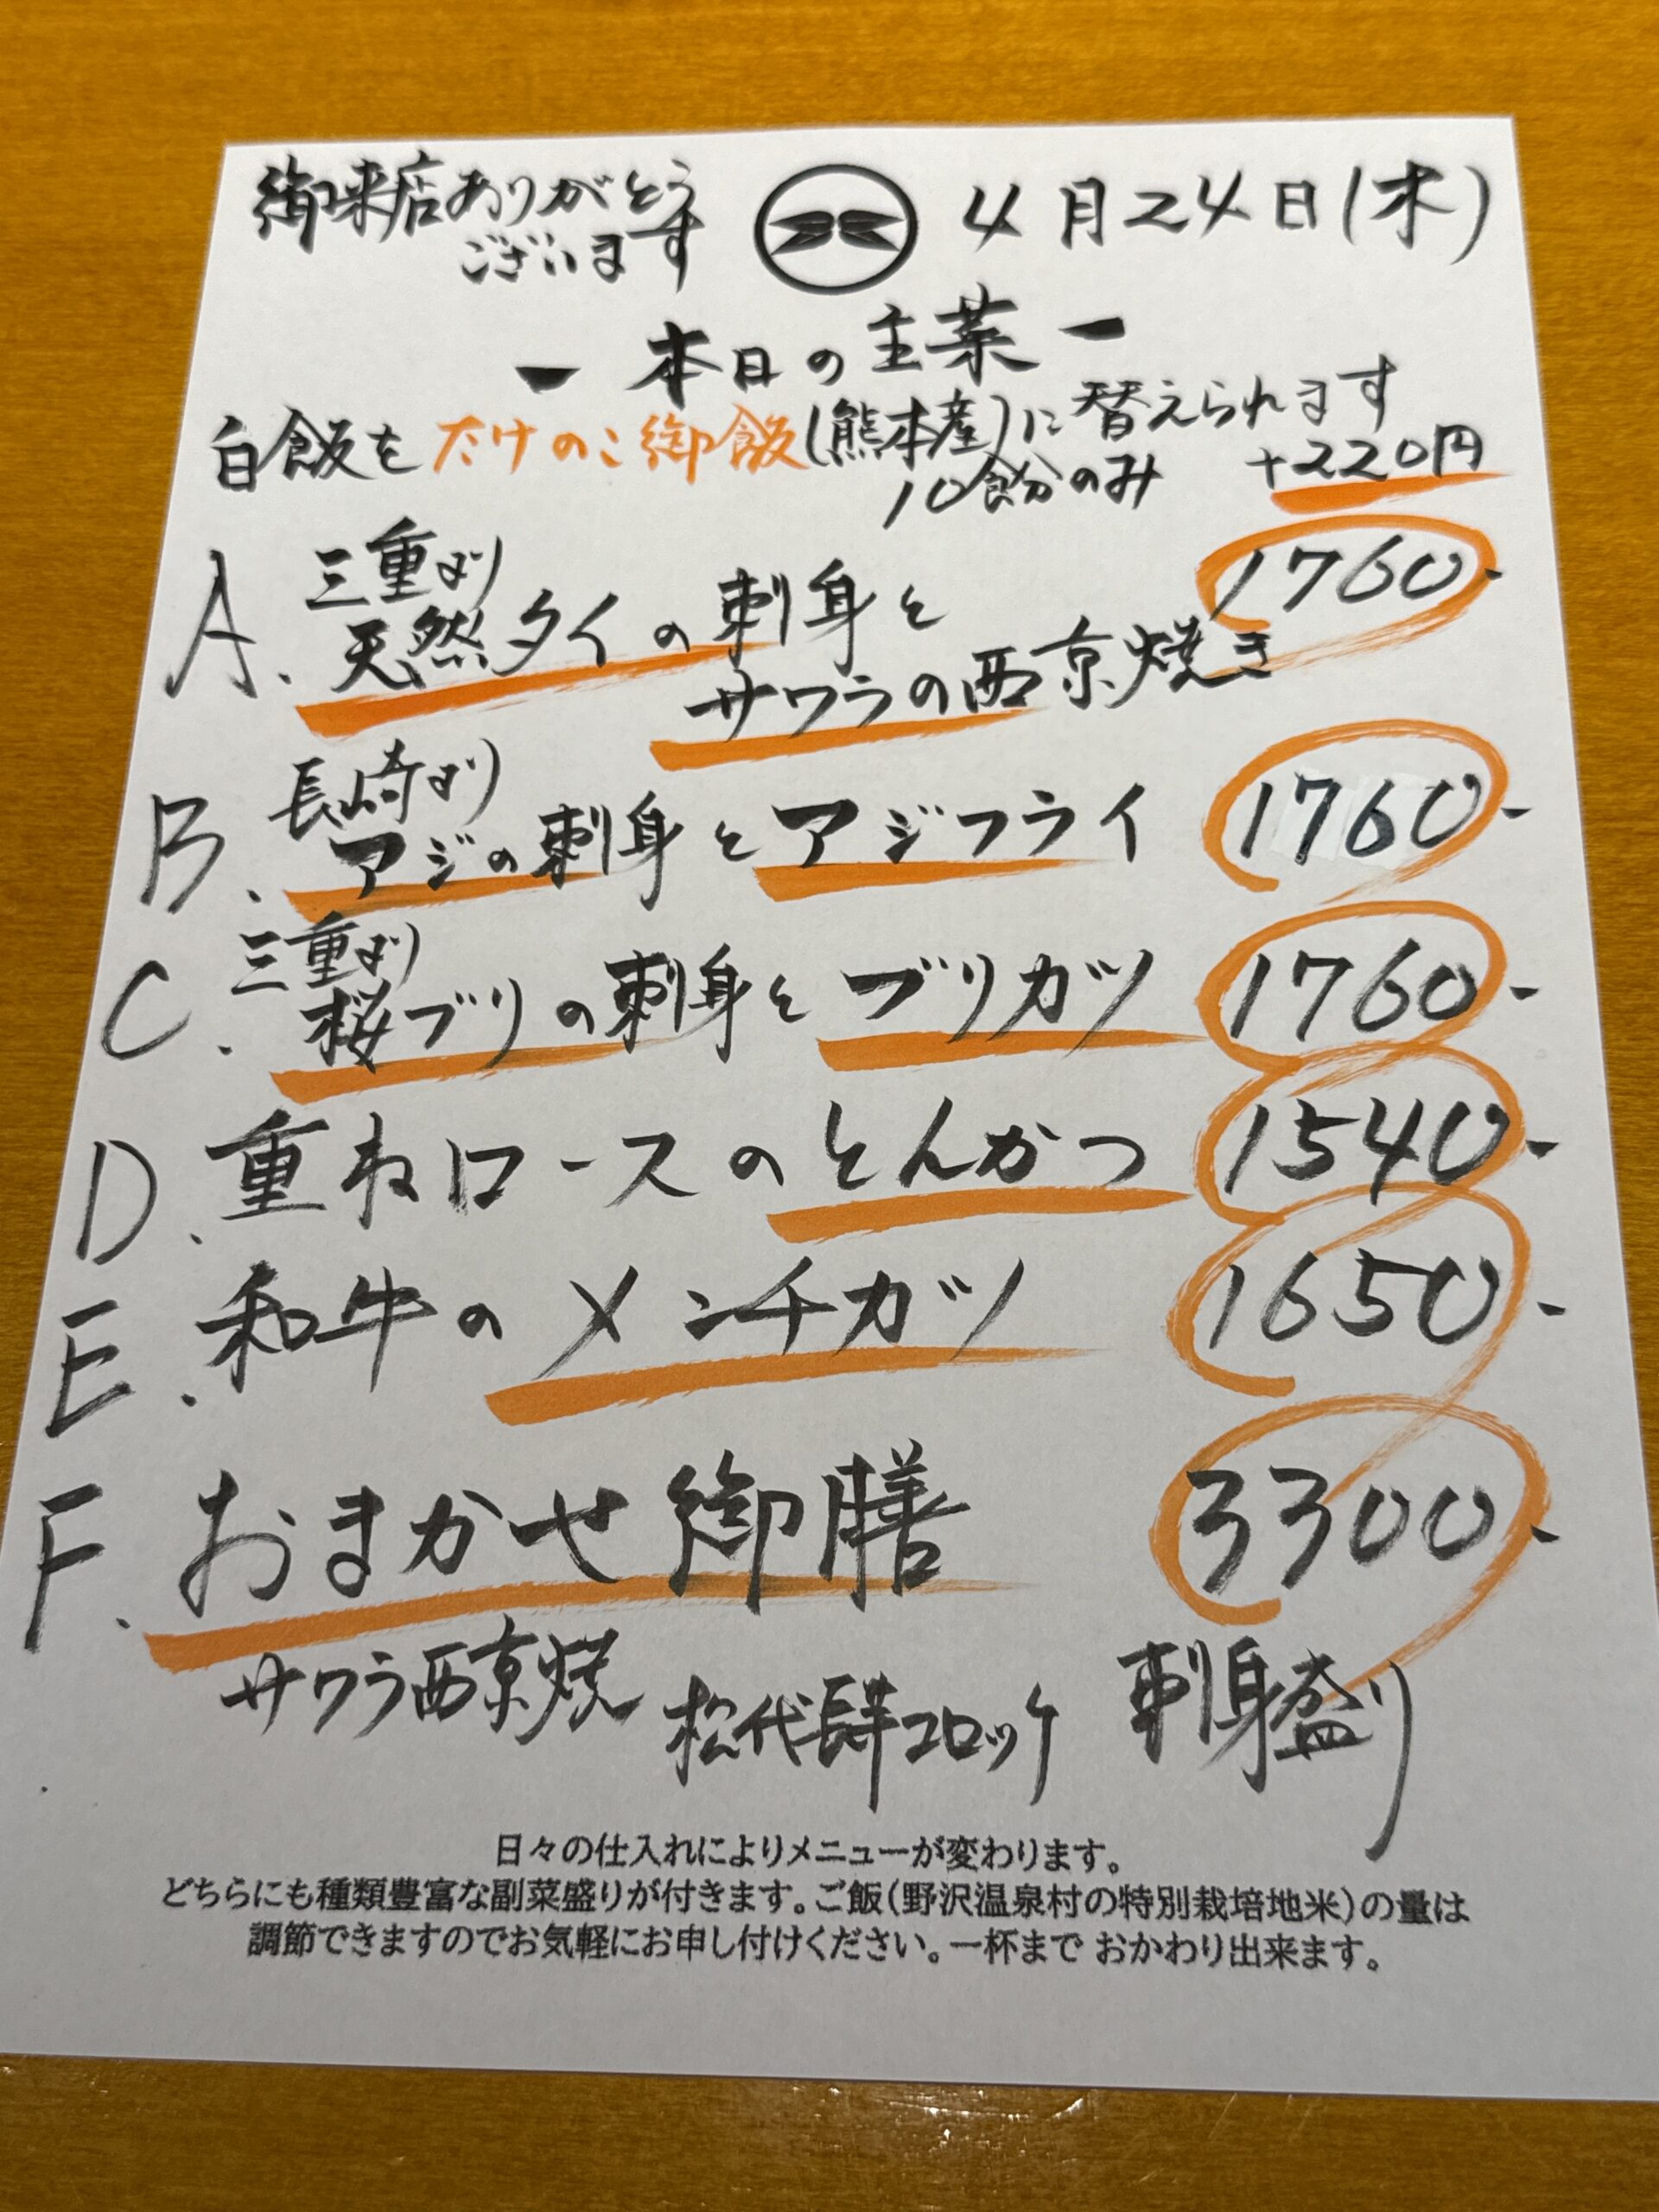 御来店ありがとう
ございます
4月24日(木)
- 本日の主菜 -
白飯をたけのこ御飯(熊本産)に替えられます
10食分のみ +220円
A. 三重より
天然タイの刺身と 1760-
サワラの西京焼き
B. 長崎より
アジの刺身とアジフライ 1760-
C. 三重より
桜ブリの刺身とブリカツ 1760-
D. 重ねロースのとんかつ 1540-
E. 和牛のメンチカツ 1650-
F. おまかせ御膳 3300-
サワラ西京焼 松代長芋コロッケ 刺身盛り
日々の仕入れによりメニューが変わります。
どちらにも種類豊富な副菜盛りが付きます。ご飯(野沢温泉村の特別栽培地米)の量は
調節できますのでお気軽にお申し付けください。一杯まで おかわり出来ます。